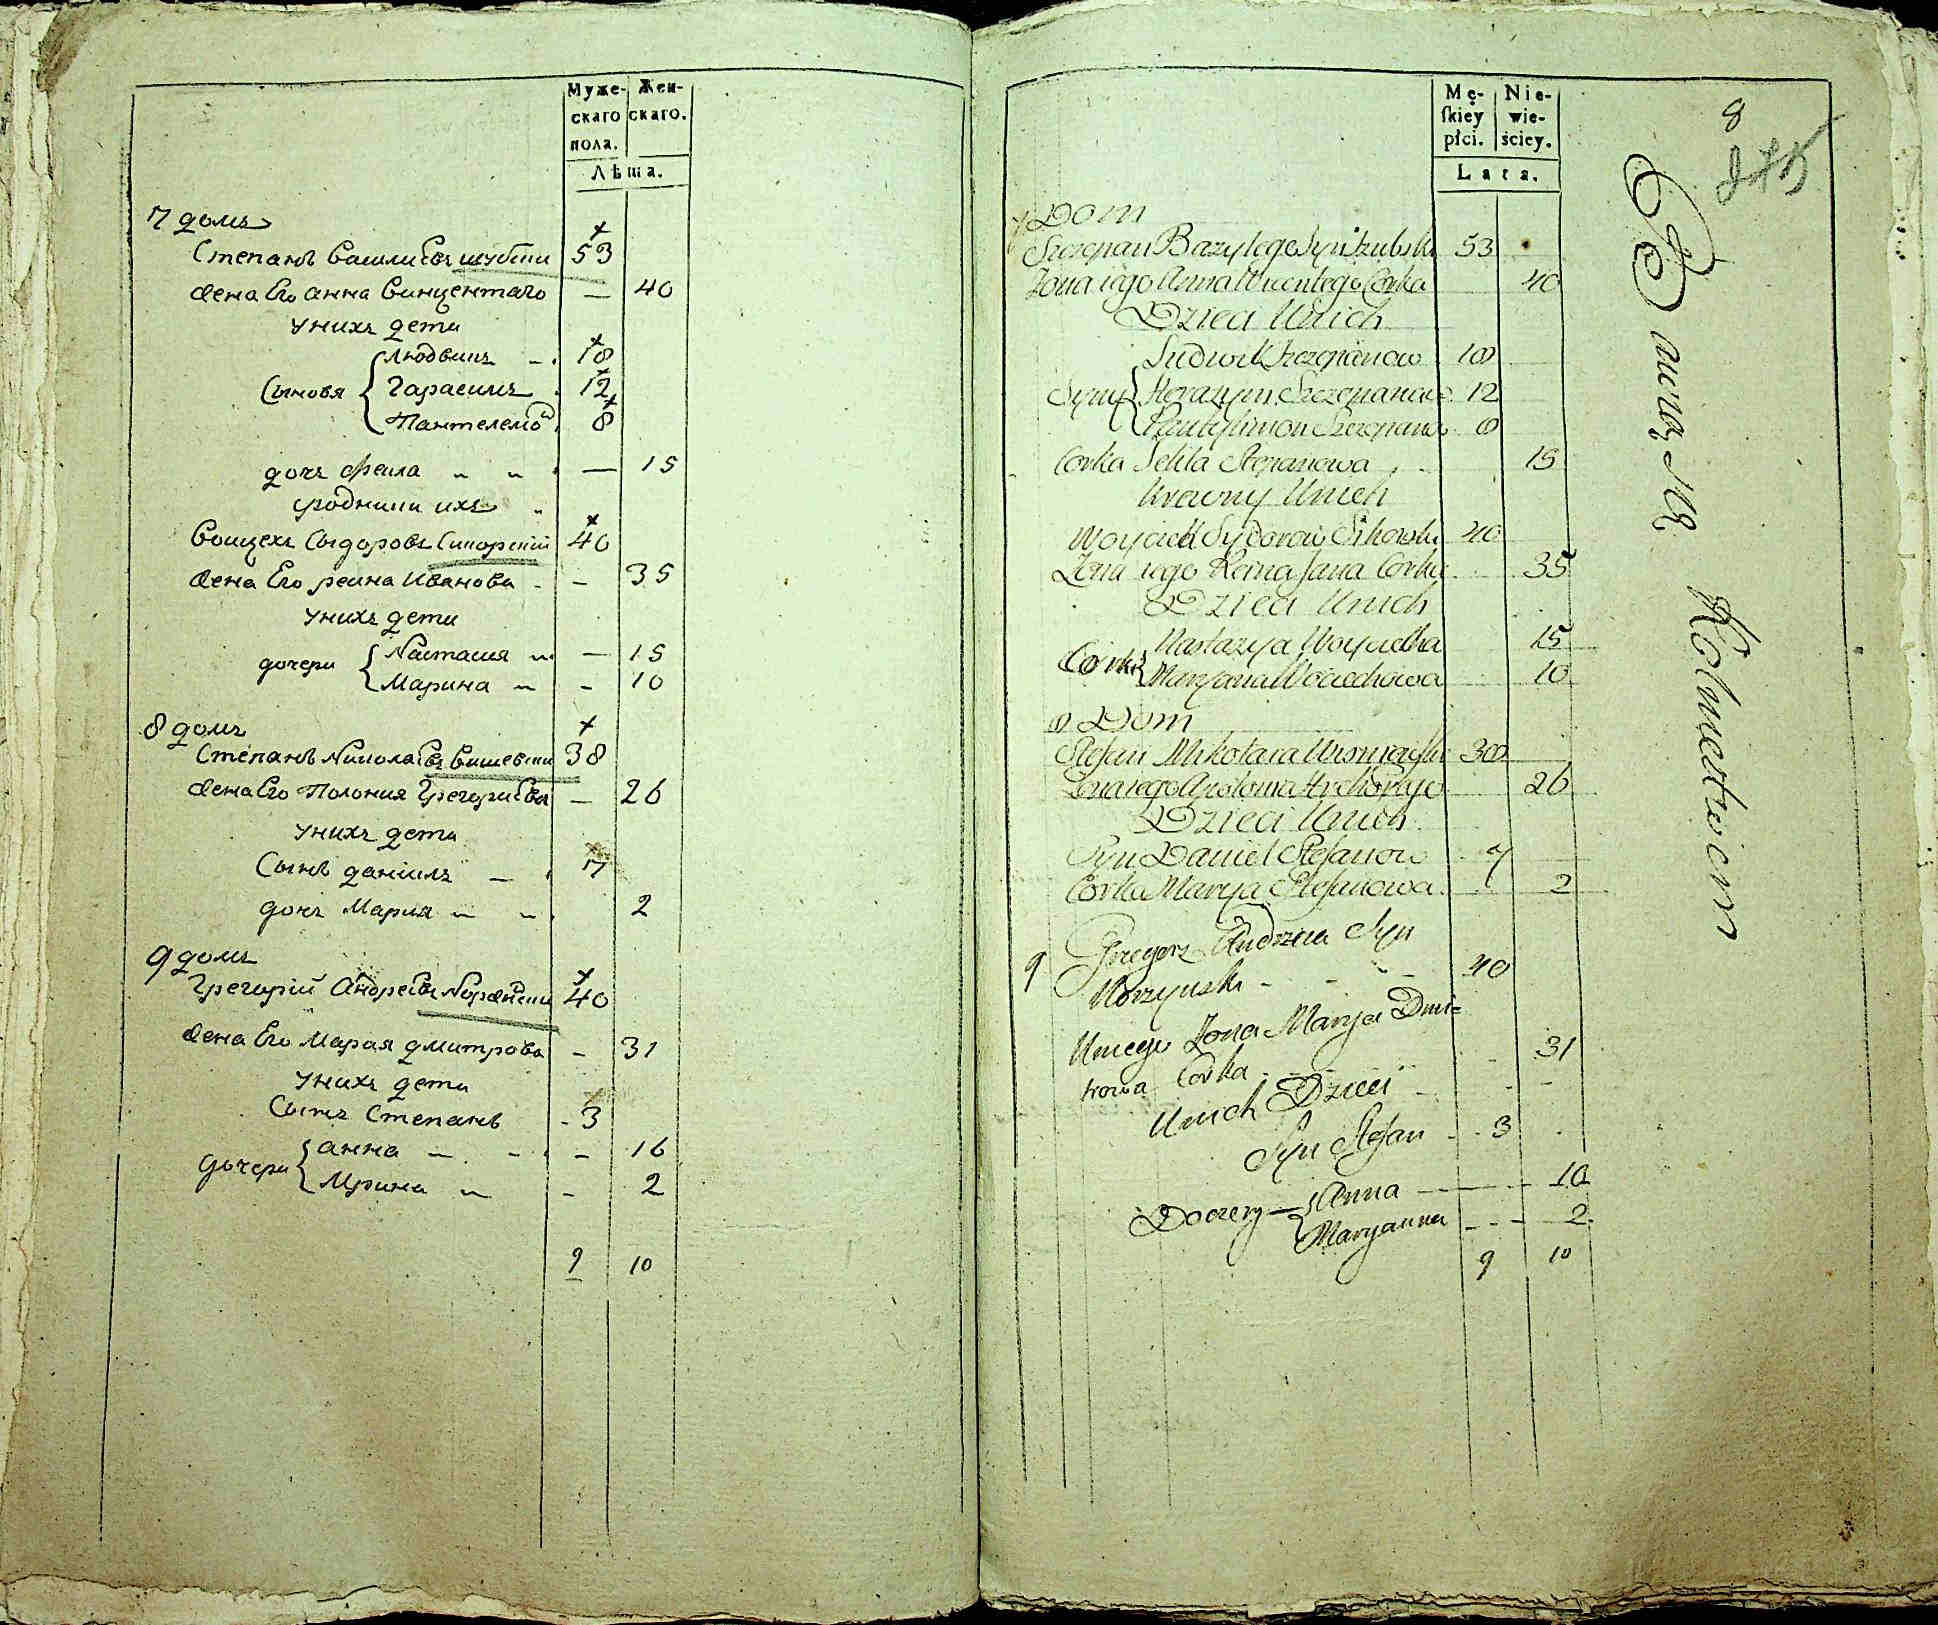 Муже-
скаго
пола.
Жен-
скаго.
Лѣта.
7 домъ
Степанъ Василиевъ шубски 53
Жена Его анна Винцентаго — 40
Унихъ дети
Сыновя
Людвикъ 18
Гарасимъ 12
Пантелемо 8
дочь феила — 15
сродники ихъ
Воицехъ Сыдоровъ Сикорский 40
Жена Его реина Иванова - 35
Унихъ дети
дочери
Настасия — 15
Марина - 10
8 домъ
Степанъ Николаевъ 38
Жена Его Полония Грегориева — 26
Унихъ дети
Сынъ данiилъ — 7
дочь Мария 2
9 домъ
Грегорий Андреевъ 40
Жена Его Марая дмитрова - 31
Унихъ дети
Сынъ Степанъ - 3
дочери
анна - 16
Мрина - 2
9 10
Mę-
ſkiey
płci.
Nie-
wie-
ściey.
Lata.
8
275
7 Dom
Szczepan Bazylego Syn Szubski 53
Żona iego Anna Wincentego Corka 40
Dzieci Unich
Syny
Ludwik Szczepanow 18
Herazym Szczepanow 12
Pantylimon Szczepanow 8
Corka Felila Stepanowa 15
Krewny Unich
Woyciech Sydorow Sikorski 40
Żona iego Reina Jana Corka 35
Dzieci Unich
Corki
Nastazya Woyciecha 15
Maryana Wociechowa 10
8 Dom
Stefan Mikołaia 38
Żona iego Apolonia Hrehorego 26
Dzieci Unich
Syn Daniel Stefanow 7
Corka Marya Stefanowa 2
9 Gregorz Andrzeia Syn
Korzynski - 40
Uniego Żona Marya Dmi=
trowa Corka 31
Unich Dzieci
Syn Stefan 3
Doczery
Anna 16
Maryanna 2
9 10